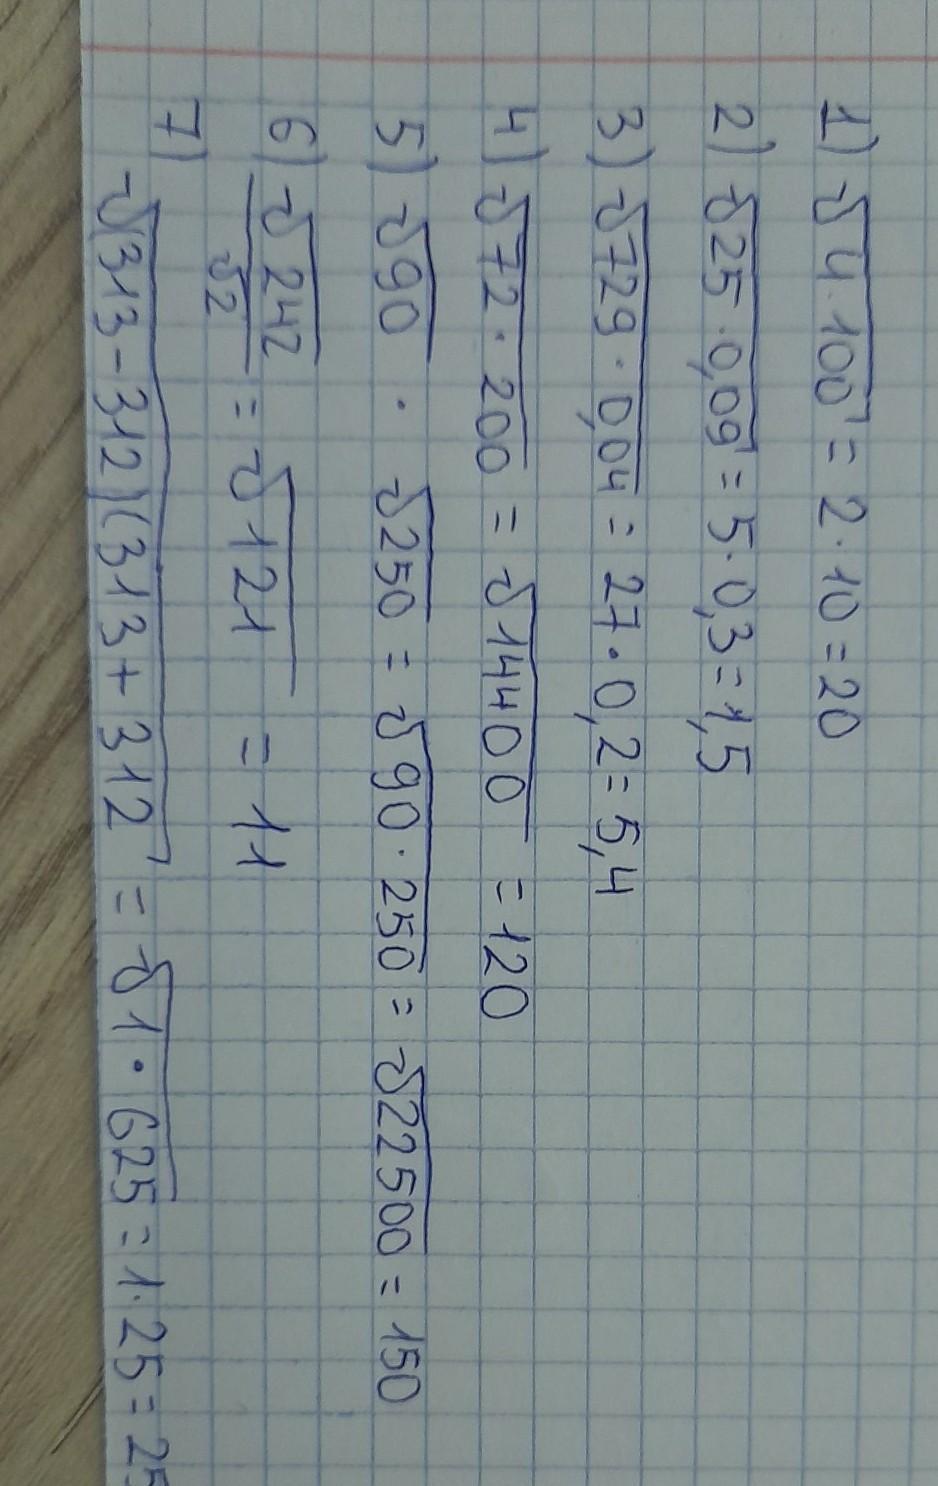 1) √4·100 = 2·10 = 20
2) √25·0,09 = 5·0,3 = 1,5
3) √729·0,04 = 27·0,2 = 5,4
4) √72·200 = √14400 = 120
5) √90 · √250 = √90·250 = √22500 = 150
6) √242/√2 = √121 = 11
7) √(313-312)(313+312 = √1·625 = 1·25 = 25